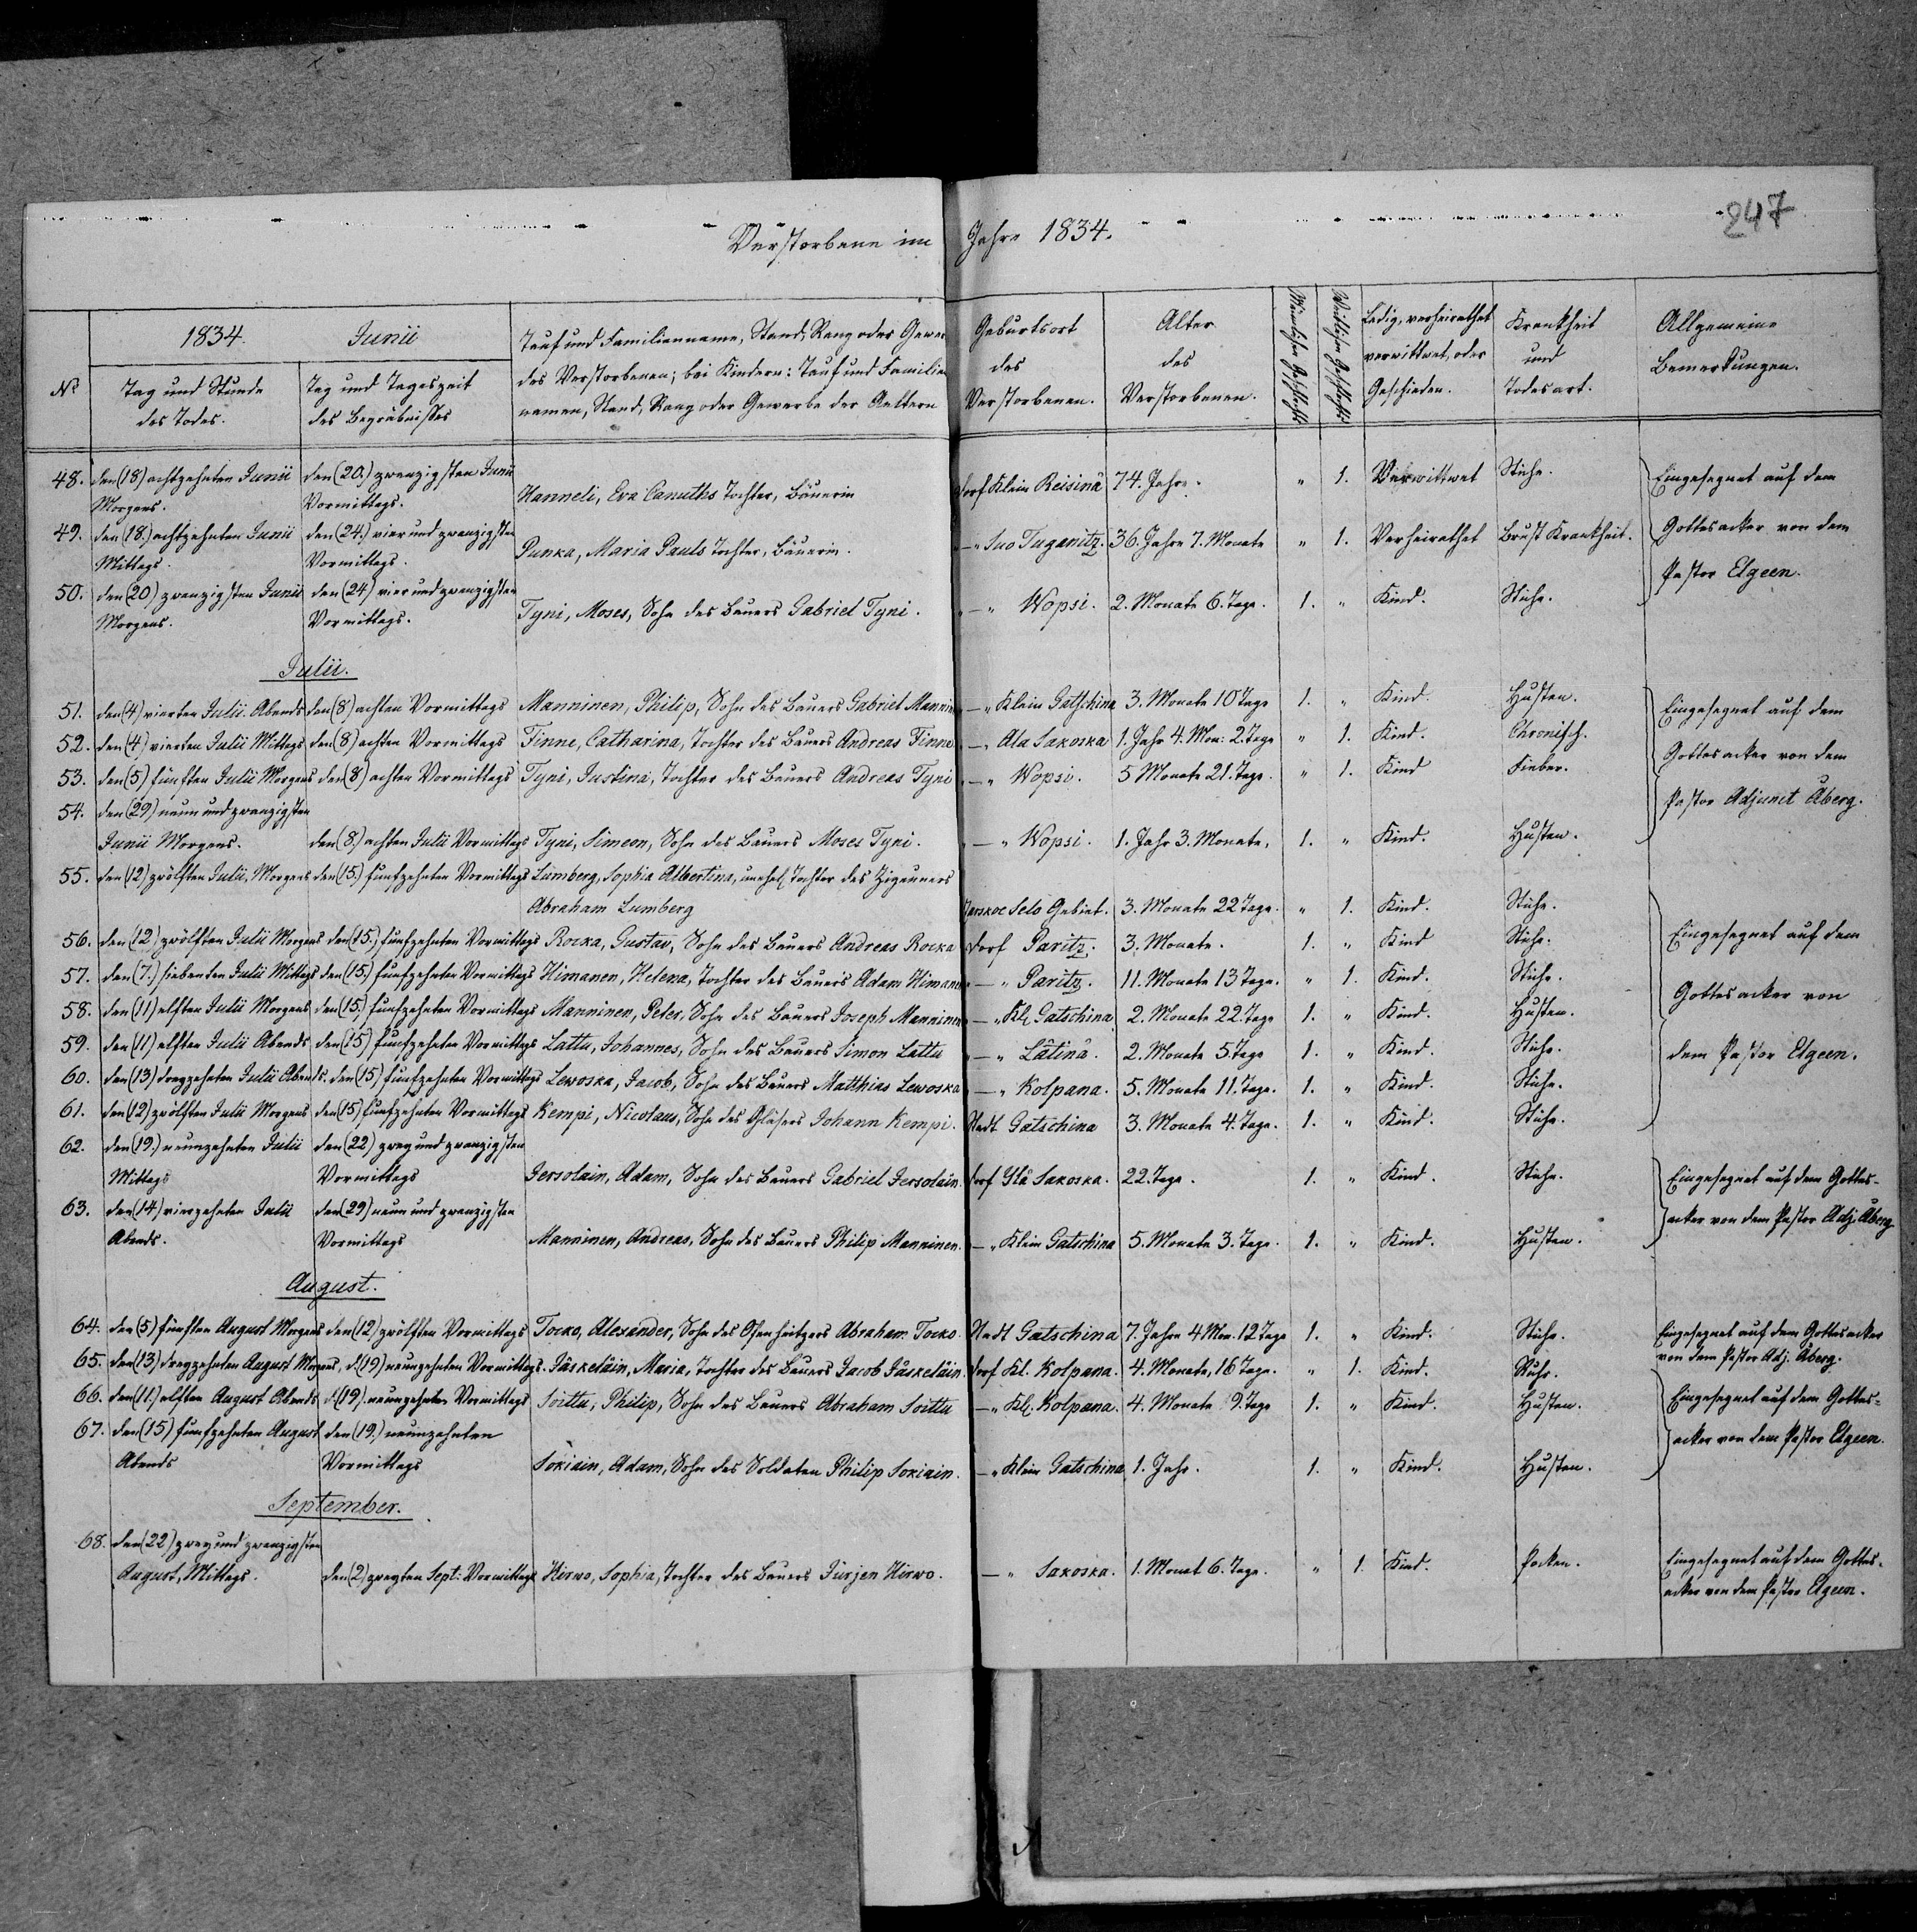 247
Verstorbene im Jahre 1834.
No
1834. Junii
Tag und Stunde des Todes.
Tag und Tageszeit des Begräbnißes
Tauf und Familienname, Stand, Rang oder Gewer
des Verstorbenen; bei Kindern: Tauf und Familien
namen, Stand, Rang oder Gewerbe der Aeltern
Geburtsort des Verstorbenen.
Alter des Verstorbenen.
Männlichen Geschlechts
Weiblichen Geschlechts
Ledig, verheirathet verwittwet, oder Geschieden.
Krankheit und Todesart.
Allgemeine Bemerkungen.
48. den (18) achtzehnten Junii den (20.) zwanzigsten Junii
Morgens. Vormittags. Hanneli, Eva Canuths Tochter, Bäuerin Dorf Klein Reisinä 74. Jahre. " 1. Verwittwet Stiche. Eingesegnet auf dem
49. den (18.) achtzehnten Junii den (24.) vier und zwanzigsten
Mittags. Vormittags. Punka, Maria Pauls Tochter, Bäuerin. —" Suo Tuganitz. 36. Jahre 7. Monate " 1. Verheirathet Brust Krankheit. Gottesacker von dem
50. den (20) zwanzigsten Junii den (24) vier und zwanzigsten Pastor Elgeen.
Morgens. Vormittags. Tyni, Moses, Sohn des Bauers Gabriel Tyni. —" Wopsi. 2. Monate 6. Tage. 1. " Kind. Stiche.
Julii.
51. den (4) vierten Julii Abends den (8) achten Vormittags Manninen, Philip, Sohn des Bauers Gabriel Mannin —" Klein Gatschina 3. Monate 10 Tage 1. " Kind. Husten. Eingesegnet auf dem
52. den (4) vierten Julii Mittags den (8) achten Vormittags Tinne, Catharina, Tochter des Bauers Andreas Tinne —" Ala Sakoska 1. Jahr 4. Mon: 2. Tage " 1. Kind. Chronisch. Gottesacker von dem
53. den (5) fünften Julii Morgens den (8) achten Vormittags Tyni, Justina, Tochter des Bauers Andreas Tyni —" Wopsi. 5 Monate 21. Tage. " 1. Kind Fieber. Pastor Adjunct Åberg.
54. den (29) neun und zwanzigsten
Junii Morgens. den (8.) achten Julii Vormittags Tyni, Simeon, Sohn des Bauers Moses Tyni. —" Wopsi. 1. Jahr 3. Monate. 1. " Kind. Husten.
55. den (12) zwölften Julii, Morgens den (15.) funfzehnten Vormittags Lumberg, Sophia Albertina, unehel. Tochter des Zigeuners
Abraham Lumberg Zarskoe Selo Gebiet. 3. Monate 22 Tage. " 1. Kind. Stiche.
56. den (12) zwölften Julii Morgens den (15.) funfzehnten Vormittags Rocka, Gustav, Sohn des Bauers Andreas Rocka Dorf Paritz. 3. Monate. 1. " Kind Stiche. Eingesegnet auf dem
57. den (7.) siebenten Julii Mittags den (15.) funfzehnten Vormittags Himanen, Helena, Tochter des Bauers Adam Himane —" Paritz. 11. Monate 13 Tage. " 1. Kind. Stiche.
58. den (11) elften Julii Morgens den (15.) funfzehnten Vormittags Manninen, Peter, Sohn des Bauers Joseph Manninen —" Kl. Gatschina 2. Monate 22. Tage 1. " Kind. Husten. Gottesacker von
59. den (11) elften Julii Abends den (15) funfzehnten Vormittags Lattu, Johannes, Sohn des Bauers Simon Lattu —" Lätinä. 2. Monate 5. Tage 1. " Kind. Stiche. dem Pastor Elgeen.
60. den (13) dreyzehnten Julii Abends. den (15) funfzehnten Vormittags Lewoska, Jacob, Sohn des Bauers Matthias Lewoska —" Kolpana. 5. Monate 11. Tage. 1. " Kind. Stiche.
61. den (12) zwölften Julii Morgens den (15) funfzehnten Vormittags Kempi, Nicolaus, Sohn des Gläsers Johann Kempi. Stadt Gatschina 3. Monate 4. Tage. 1. " Kind. Stiche.
62. den (19.) neunzehnten Julii den (22) zwey und zwanzigsten
Mittags Vormittags Jersoläin, Adam, Sohn des Bauers Gabriel Jersoläin. Dorf Ylä Sakoska. 22. Tage. 1. " Kind. Stiche. Eingesegnet auf dem Gottes-
63. den (14) vierzehnten Julii den (29) neun und zwanzigsten acker von dem Pastor Adj. Åberg.
Abends. Vormittags Manninen, Andreas, Sohn des Bauers Philip Manninen. —" Klein Gatschina 5. Monate 3. Tage. 1. " Kind. Husten.
August.
64. den (5) fünften August Morgens den (12) zwölften Vormittags Tocko, Alexander, Sohn des Ofenheitzers Abraham Tocko Stadt Gatschina 7. Jahre 4 Mon. 12 Tage 1. " Kind. Stiche. Eingesegnet auf dem Gottesacker
65. den (13) dreyzehnten August Morgens, d. (19) neunzehnten Vormittags. Jäskeläin, Maria, Tochter des Bauers Jacob Jäskeläin. Dorf Kl. Kolpana. 4. Monate, 16 Tage. " 1. Kind. Ruhr. von dem Pastor Adj. Åberg.
66. den (11.) elften August Abends d. (19). neunzehnten Vormittags Soittu, Philip, Sohn des Bauers Abraham Soittu —" Kl. Kolpana. 4. Monate 9. Tage 1. " Kind. Husten. Eingesegnet auf dem Gottes-
67. den (15) funfzehnten August den (19.) neunzehnten acker von dem Pastor Elgeen.
Abends Vormittags Sokiain, Adam, Sohn des Soldaten Philip Sokiain. —" Klein Gatschina 1. Jahr. 1. " Kind. Husten.
September.
68. den (22) zwey und zwanzigsten
August, Mittags. den (2) zweyten Sept: Vormittags Hirwo, Sophia, Tochter des Bauers Jürjen Hirwo. —" Sakoska. 1. Monat 6. Tage. " 1. Kind. Pocken. Eingesegnet auf dem Gottes-
acker von dem Pastor Elgeen.